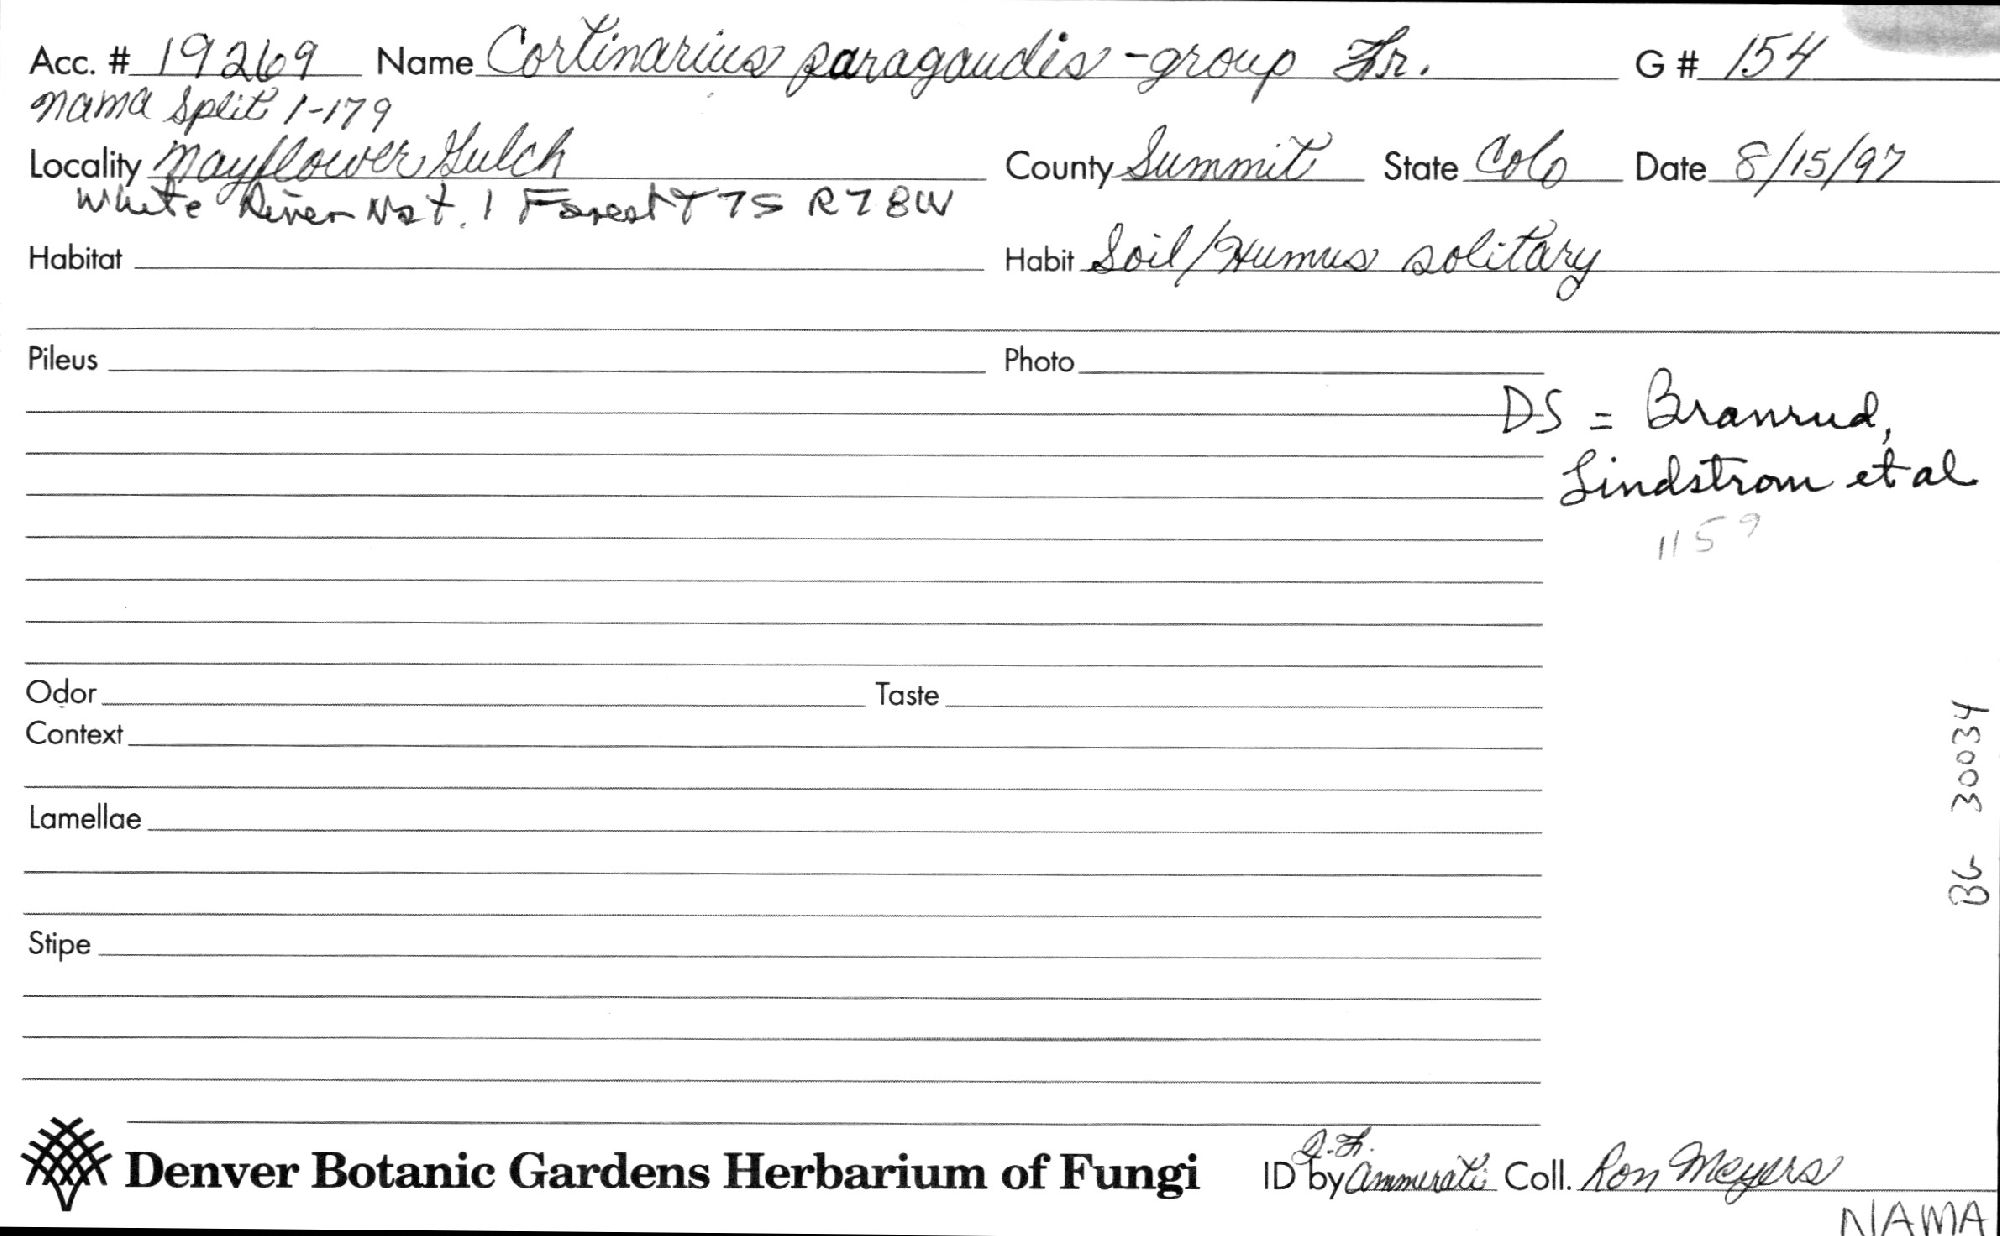 Acc. # 19269 Name Cortinarius paragaudis -group Fr. G # 154
Nama Split 1-179
Locality Mayflower Gulch County Summit State Colo Date 8/15/97
White River Nat. l Forest T7S R78W
Habitat Habit Soil/Humus solitary
Pileus Photo
DS = Branrud,
Lindstrom et al
1159
Odor Taste
Context
BG 30034
Lamellae
Stipe
Denver Botanic Gardens Herbarium of Fungi ID by J.F. Ammirati Coll. Ron Meyers
NAMA